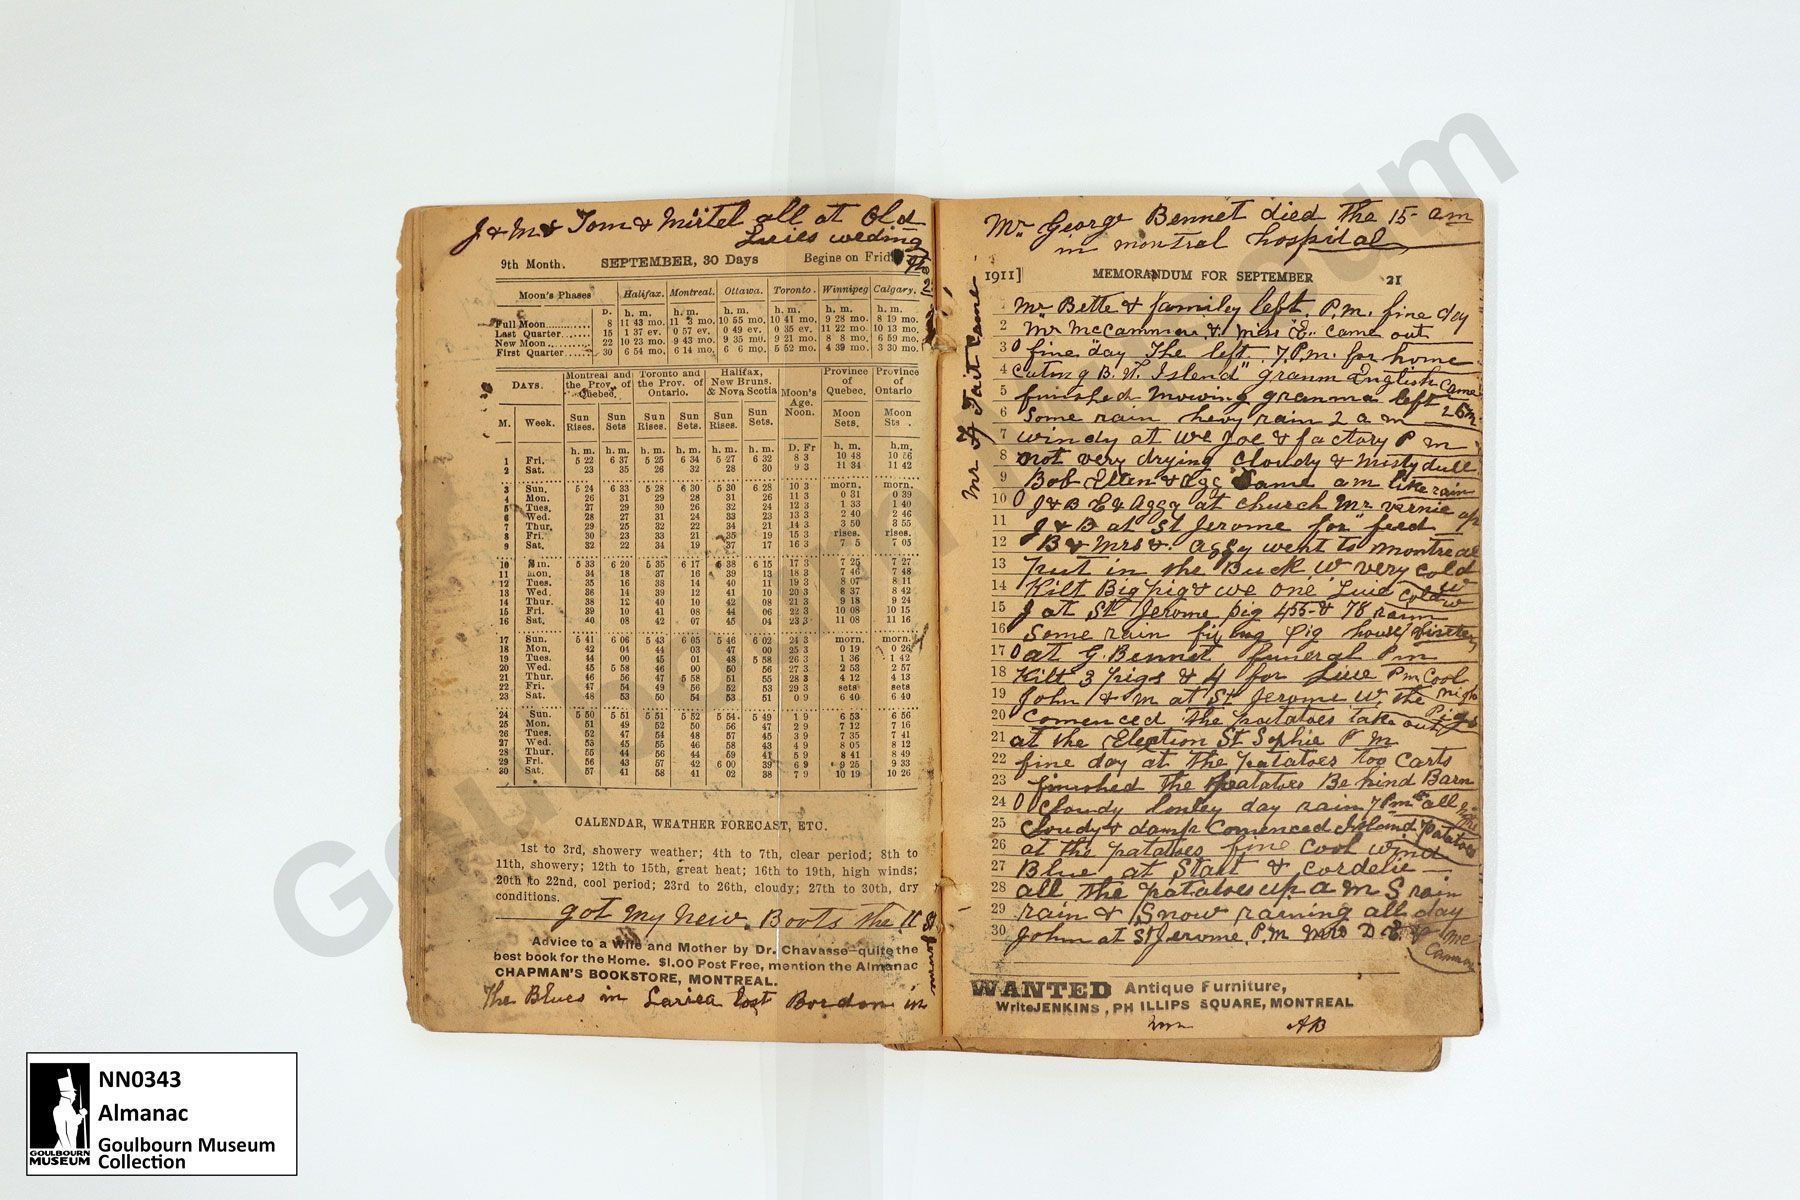 J & M & Tom & Mirtel all at Old
Laries weding
the 2
9th Month. SEPTEMBER, 30 Days Begins on Frid
Moon's Phases Halifax. Montreal. Ottawa. Toronto. Winnipeg Calgary.
D. h. m. h. m. h. m. h. m. h. m. h. m.
Full Moon 8 11 43 mo. 11 3 mo. 10 55 mo. 10 41 mo. 9 28 mo. 8 19 mo.
Last Quarter 15 1 37 ev. 0 57 ev. 0 49 ev. 0 35 ev. 11 22 mo. 10 13 mo.
New Moon 22 10 23 mo. 9 43 mo. 9 35 mo. 9 21 mo. 8 8 mo. 6 59 mo.
First Quarter 30 6 54 mo. 6 14 mo. 6 6 mo. 5 52 mo. 4 39 mo. 3 30 mo.
DAYS. Montreal and the Prov. of Quebec. Toronto and the Prov. of Ontario. Halifax, New Bruns. & Nova Scotia Moon's Age. Noon. Province of Quebec. Province of Ontario
M. Week. Sun Rises. Sun Sets Sun Rises. Sun Sets. Sun Rises. Sun Sets. Moon Sets. Moon Sts.
h. m. h. m. h. m. h. m. h. m. h. m. D. Fr h. m. h.m.
1 Fri. 5 22 6 37 5 25 6 34 5 27 6 32 8 3 10 48 10 56
2 Sat. 23 35 26 32 28 30 9 3 11 34 11 42
3 Sun. 5 24 6 33 5 28 6 30 5 30 6 28 10 3 morn. morn.
4 Mon. 26 31 29 28 31 26 11 3 0 31 0 39
5 Tues. 27 29 30 26 32 24 12 3 1 33 1 40
6 Wed. 28 27 31 24 33 23 13 3 2 40 2 46
7 Thur. 29 25 32 22 34 21 14 3 3 50 3 55
8 Fri. 30 23 33 21 35 19 15 3 rises. rises.
9 Sat. 32 22 34 19 37 17 16 3 7 5 7 05
10 Sun. 5 33 6 20 5 35 6 17 5 38 6 15 17 3 7 25 7 27
11 Mon. 34 18 37 16 39 13 18 3 7 46 7 48
12 Tues. 35 16 38 14 40 11 19 3 8 07 8 11
13 Wed. 36 14 39 12 41 10 20 3 8 37 8 42
14 Thur. 38 12 40 10 42 08 21 3 9 18 9 24
15 Fri. 39 10 41 08 44 06 22 3 10 08 10 15
16 Sat. 40 08 42 07 45 04 23 3 11 08 11 16
17 Sun. 5 41 6 06 5 43 6 05 5 46 6 02 24 3 morn. morn.
18 Mon. 42 04 44 03 47 00 25 3 0 19 0 26
19 Tues. 44 00 45 01 48 5 58 26 3 1 36 1 42
20 Wed. 45 5 58 46 00 50 56 27 3 2 53 2 57
21 Thur. 46 56 47 5 58 51 55 28 3 4 12 4 13
22 Fri. 47 54 49 56 52 53 29 3 sets sets
23 Sat. 48 53 50 54 53 51 0 9 6 40 6 40
24 Sun. 5 50 5 51 5 51 5 52 5 54 5 49 1 9 6 53 6 56
25 Mon. 51 49 52 50 56 47 2 9 7 12 7 16
26 Tues. 52 47 54 48 57 45 3 9 7 35 7 41
27 Wed. 53 45 55 46 58 43 4 9 8 05 8 12
28 Thur. 55 44 56 44 59 41 5 9 8 41 8 49
29 Fri. 56 43 57 42 6 00 39 6 9 9 25 9 33
30 Sat. 57 41 58 41 02 38 7 9 10 19 10 26
CALENDAR, WEATHER FORECAST, ETC.
1st to 3rd, showery weather; 4th to 7th, clear period; 8th to
11th, showery; 12th to 15th, great heat; 16th to 19th, high winds;
20th to 22nd, cool period; 23rd to 26th, cloudy; 27th to 30th, dry
conditions.
got my new Boots the 11
Advice to a Wife and Mother by Dr. Chavasse—quite the
best book for the Home. $1.00 Post Free, mention the Almanac
CHAPMAN'S BOOKSTORE, MONTREAL.
The Blues in Larica lost Bordon in
St Jerome
Mr George Bennet died the 15 am
in montral hospital
Mr Tait came
1911] MEMORANDUM FOR SEPTEMBER 21
1 Mr Bette & familey left. P.M. fine day
2 Mr McCammon & miss E. came out
3 0 fine day The left 7 P.m. for home
4 cuting B. W. Island granm English came
5 finished mowing granma left
6 Some rain hevy rain 2 a m
7 windy at we Joe & factory P m
8 not very drying cloudy & misty dull
9 Bob Ellen & agg Same am like rain
10 0 J & B E & Aggy at church Mr vernie
11 J & B at St Jerome for feed
12 B & Mrs & Aggy went to montreal
13 Put in the Buck W very cold
14 Kilt Big pig & we one Luie cold
15 J at St Jerome pig 455 & 78 rainn
16 Some rain fixing pig house
17 0 at G. Bennet funeral Pm
18 Kilt 3 pigs & 4 for Luie Pm Cool
19 John & m at St Jerome W. the
20 Comenced the potatoes take out Pigs
21 at the Election St Sophie P m
22 fine day at the potatoes too Carts
23 finished the potatoes Behind Barn
24 0 cloudy lonley day rain 7 Pm all
25 Cloudy & damp Comenced Island Patatoes
26 at the patatoes fine cool wind
27 Blue at Start & cordelie
28 all the patatoes up a m S rain
29 rain & Snow raining all day
30 John at St Jerome P.m Mrs D
WANTED Antique Furniture,
Write JENKINS, PHILLIPS SQUARE, MONTREAL
AB
Goulbourn Museum
NN0343
Almanac
Goulbourn Museum
Collection
GOULBOURN
MUSEUM